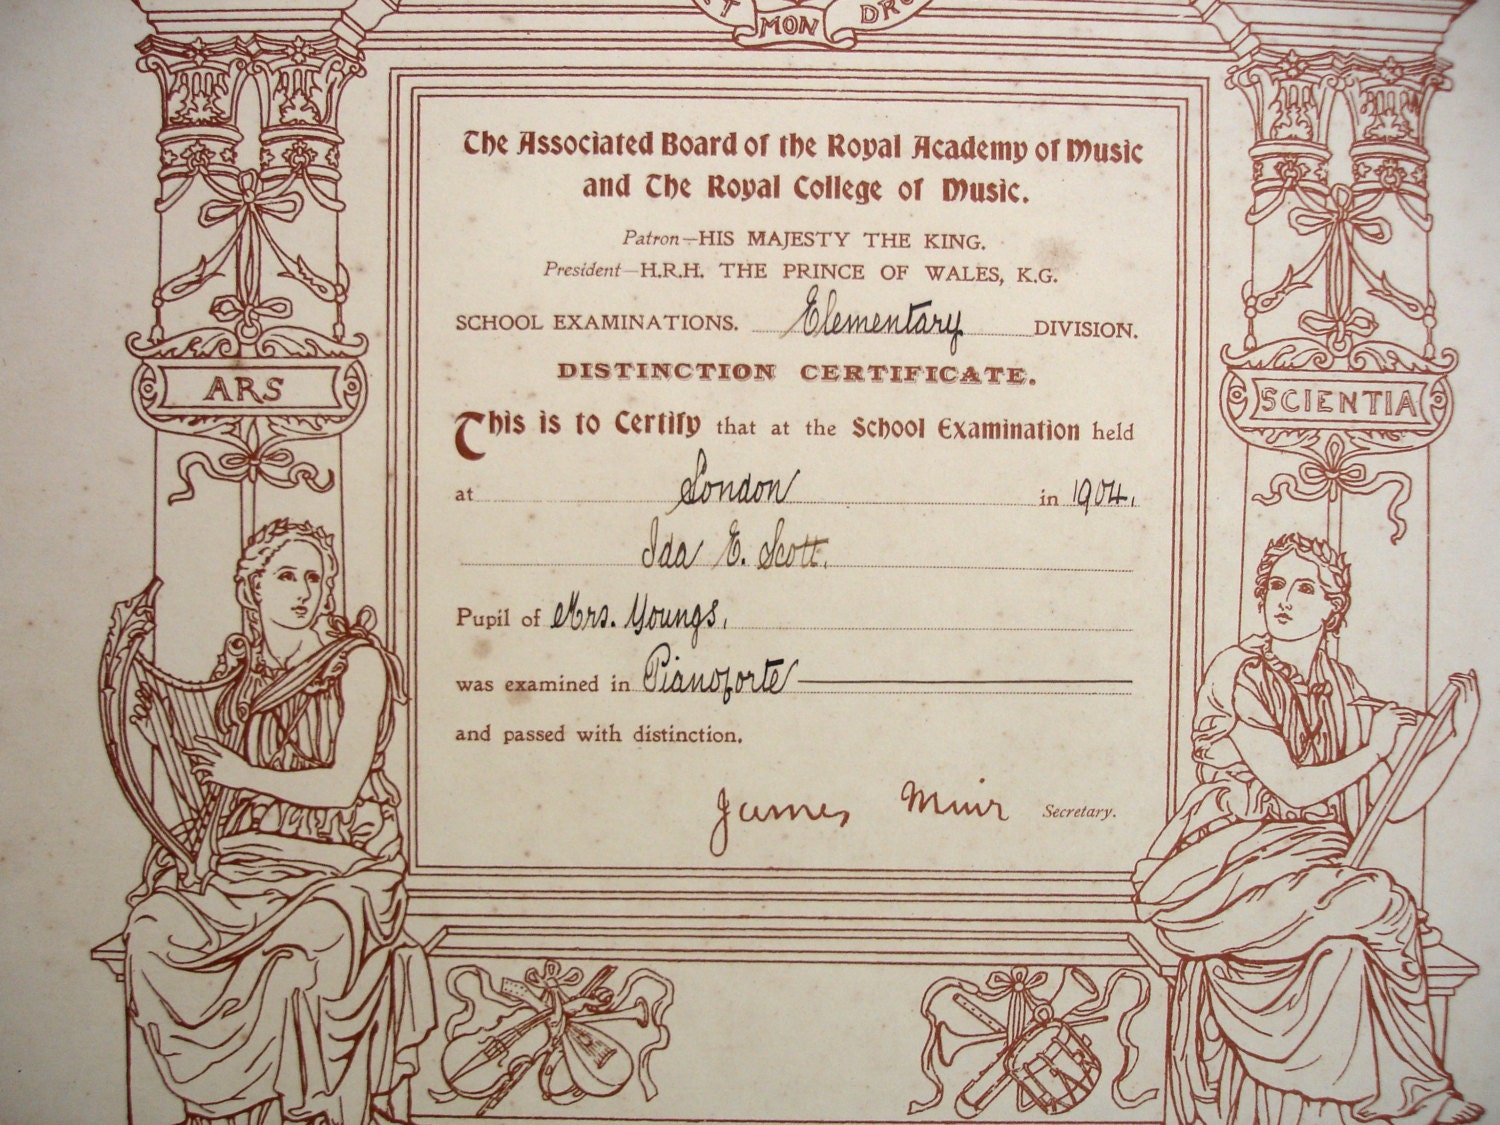 MON
The Associated Board of the Royal Academy of Music
and The Royal College of Music.
Patron—HIS MAJESTY THE KING.
President—H.R.H. THE PRINCE OF WALES, K.G.
SCHOOL EXAMINATIONS. Elementary DIVISION.
DISTINCTION CERTIFICATE.
ARS
SCIENTIA
This is to Certify that at the School Examination held
at London in 1904.
Ida E. Scott.
Pupil of Mrs. Youngs.
was examined in Pianoforte
and passed with distinction.
James Muir Secretary.